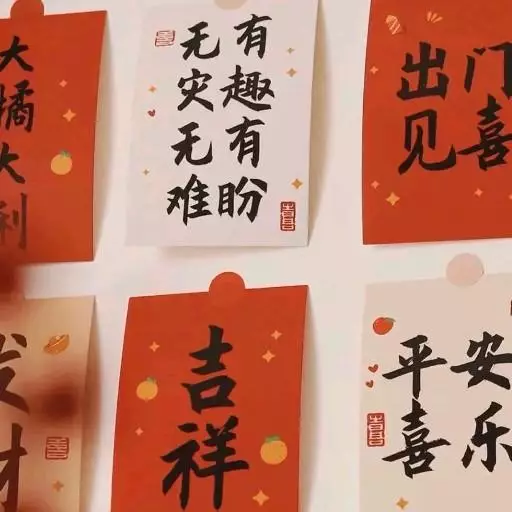 大橘大利
有趣有盼
无灾无难
出门
见喜
发财
吉祥
平安
喜乐